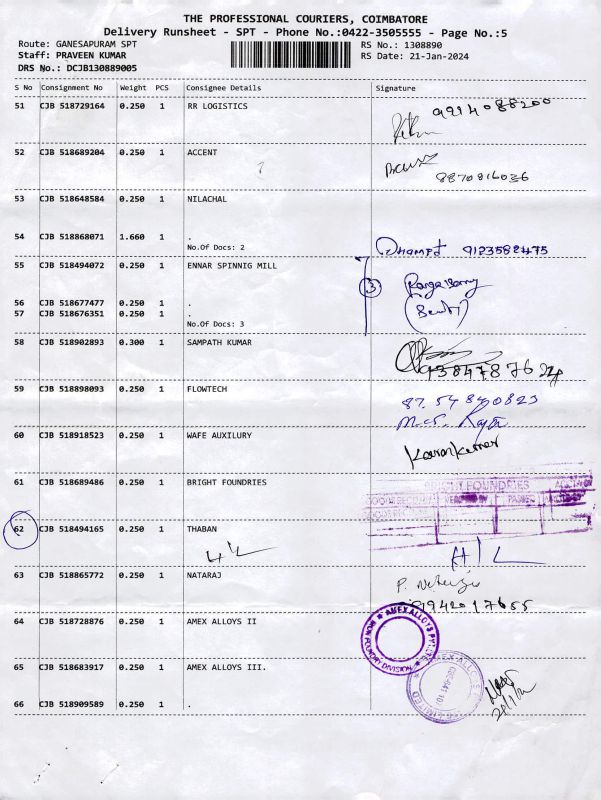 THE PROFESSIONAL COURIERS, COIMBATORE
Delivery Runsheet - SPT - Phone No.:0422-3505555 - Page No.:5
Route: GANESAPURAM SPT RS No.: 1308890
Staff: PRAVEEN KUMAR RS Date: 21-Jan-2024
DRS No.: DCJB130889005
S No Consignment No Weight PCS Consignee Details Signature
51 CJB 518729164 0.250 1 RR LOGISTICS
9914088200
52 CJB 518689204 0.250 1 ACCENT
8870816036
53 CJB 518648584 0.250 1 NILACHAL
54 CJB 518868071 1.660 1 .
No.Of Docs: 2
9123582475
55 CJB 518494072 0.250 1 ENNAR SPINNIG MILL
3
56 CJB 518677477 0.250 1 .
57 CJB 518676351 0.250 1 .
No.Of Docs: 3
58 CJB 518902893 0.300 1 SAMPATH KUMAR
59 CJB 518898093 0.250 1 FLOWTECH
87.54840823
60 CJB 518918523 0.250 1 WAFE AUXILURY
61 CJB 518689486 0.250 1 BRIGHT FOUNDRIES
BRIGHT FOUNDRIES
62 CJB 518494165 0.250 1 THABAN
H/L
H/L
63 CJB 518865772 0.250 1 NATARAJ
9942017655
64 CJB 518728876 0.250 1 AMEX ALLOYS II
AMEX ALLOYS PVT LTD
FOUNDRY DIVISION
65 CJB 518683917 0.250 1 AMEX ALLOYS III.
66 CJB 518909589 0.250 1 .